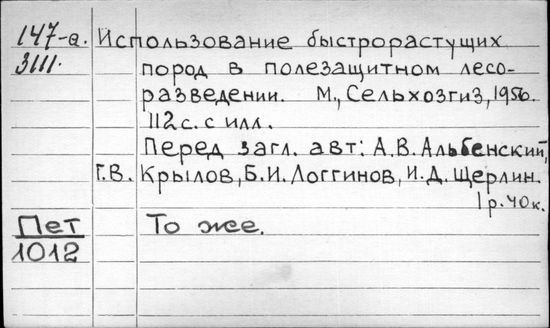 147-а. Использование быстрорастущих
3111. пород в полезащитном лесо-
разведении. М., Сельхозгиз, 1956.
112 с. с илл.
Перед загл. авт: А.В. Альбенский,
Г.В. Крылов, Б.И. Логгинов, И.Д. Щерлин.
1 р. 40 к.
Пет То же.
1012